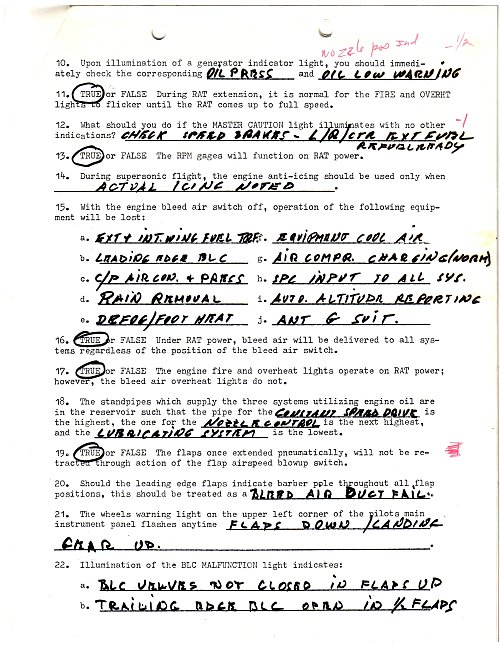 nozzle pos ind
-1/2
10. Upon illumination of a generator indicator light, you should immedi-
ately check the corresponding OIL PRESS and OIL LOW WARNING
11. TRUE or FALSE During RAT extension, it is normal for the FIRE and OVERHT
lights to flicker until the RAT comes up to full speed.
12. What should you do if the MASTER CAUTION light illuminates with no other -1
indications? CHECK SPEED BRAKES - L/R/CTR EXT FUEL
REFUEL READY
13. TRUE or FALSE The RPM gages will function on RAT power.
14. During supersonic flight, the engine anti-icing should be used only when
ACTUAL ICING NOTED.
15. With the engine bleed air switch off, operation of the following equip-
ment will be lost:
a. EXT & INT. WING FUEL TRF. f. EQUIPMENT COOL AIR
b. LEADING EDGE BLC g. AIR COMPR. CHARGING (NORM)
c. C/P AIR CON. & PRESS h. SPC INPUT TO ALL SYS.
d. RAIN REMOVAL i. AUTO. ALTITUDE REPORTING
e. DEFOG/FOOT HEAT j. ANT G SUIT.
16. TRUE or FALSE Under RAT power, bleed air will be delivered to all sys-
tems regardless of the position of the bleed air switch.
17. TRUE or FALSE The engine fire and overheat lights operate on RAT power;
however, the bleed air overheat lights do not.
18. The standpipes which supply the three systems utilizing engine oil are
in the reservoir such that the pipe for the CONSTANT SPEED DRIVE is
the highest, the one for the NOZZLE CONTROL is the next highest,
and the LUBRICATING SYSTEM is the lowest.
19. TRUE or FALSE The flaps once extended pneumatically, will not be re-
tracted through action of the flap airspeed blowup switch.
20. Should the leading edge flaps indicate barber pole throughout all flap
positions, this should be treated as a BLEED AIR DUCT FAIL.
21. The wheels warning light on the upper left corner of the pilots main
instrument panel flashes anytime FLAPS DOWN / LANDING
GEAR UP.
22. Illumination of the BLC MALFUNCTION light indicates:
a. BLC VALVES NOT CLOSED IN FLAPS UP
b. TRAILING EDGE BLC OPEN IN 1/2 FLAPS